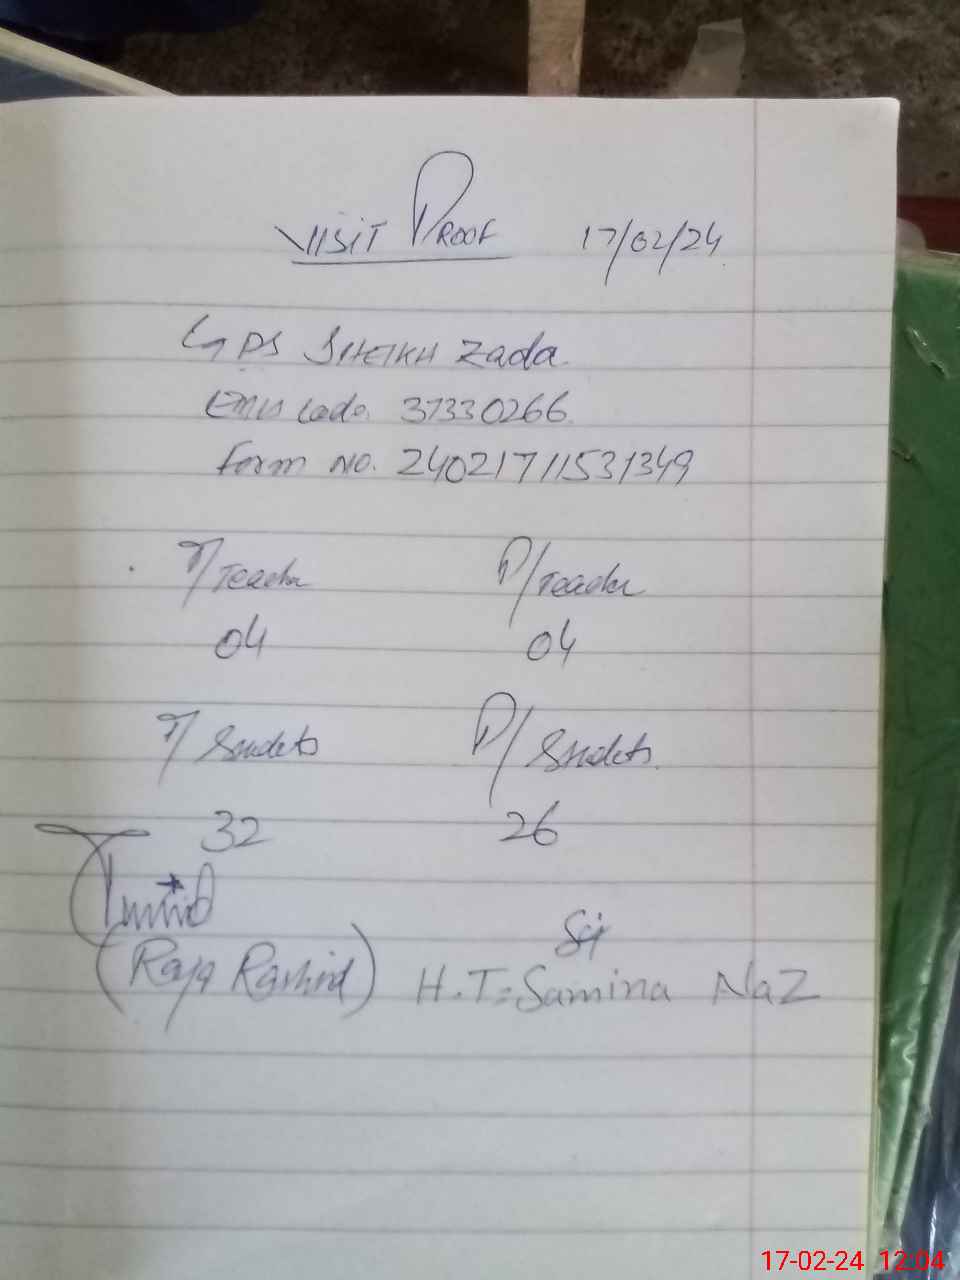 VISIT PROOF 17/02/24
GPS SHEIKH Zada.
EMIS Code. 37330266.
Form NO. 24021711531349
T/Teacher P/Teacher
04 04
T/Students P/Students.
32 26
(Raja Rashid)
H.T: Samina Naz
17-02-24 12:04